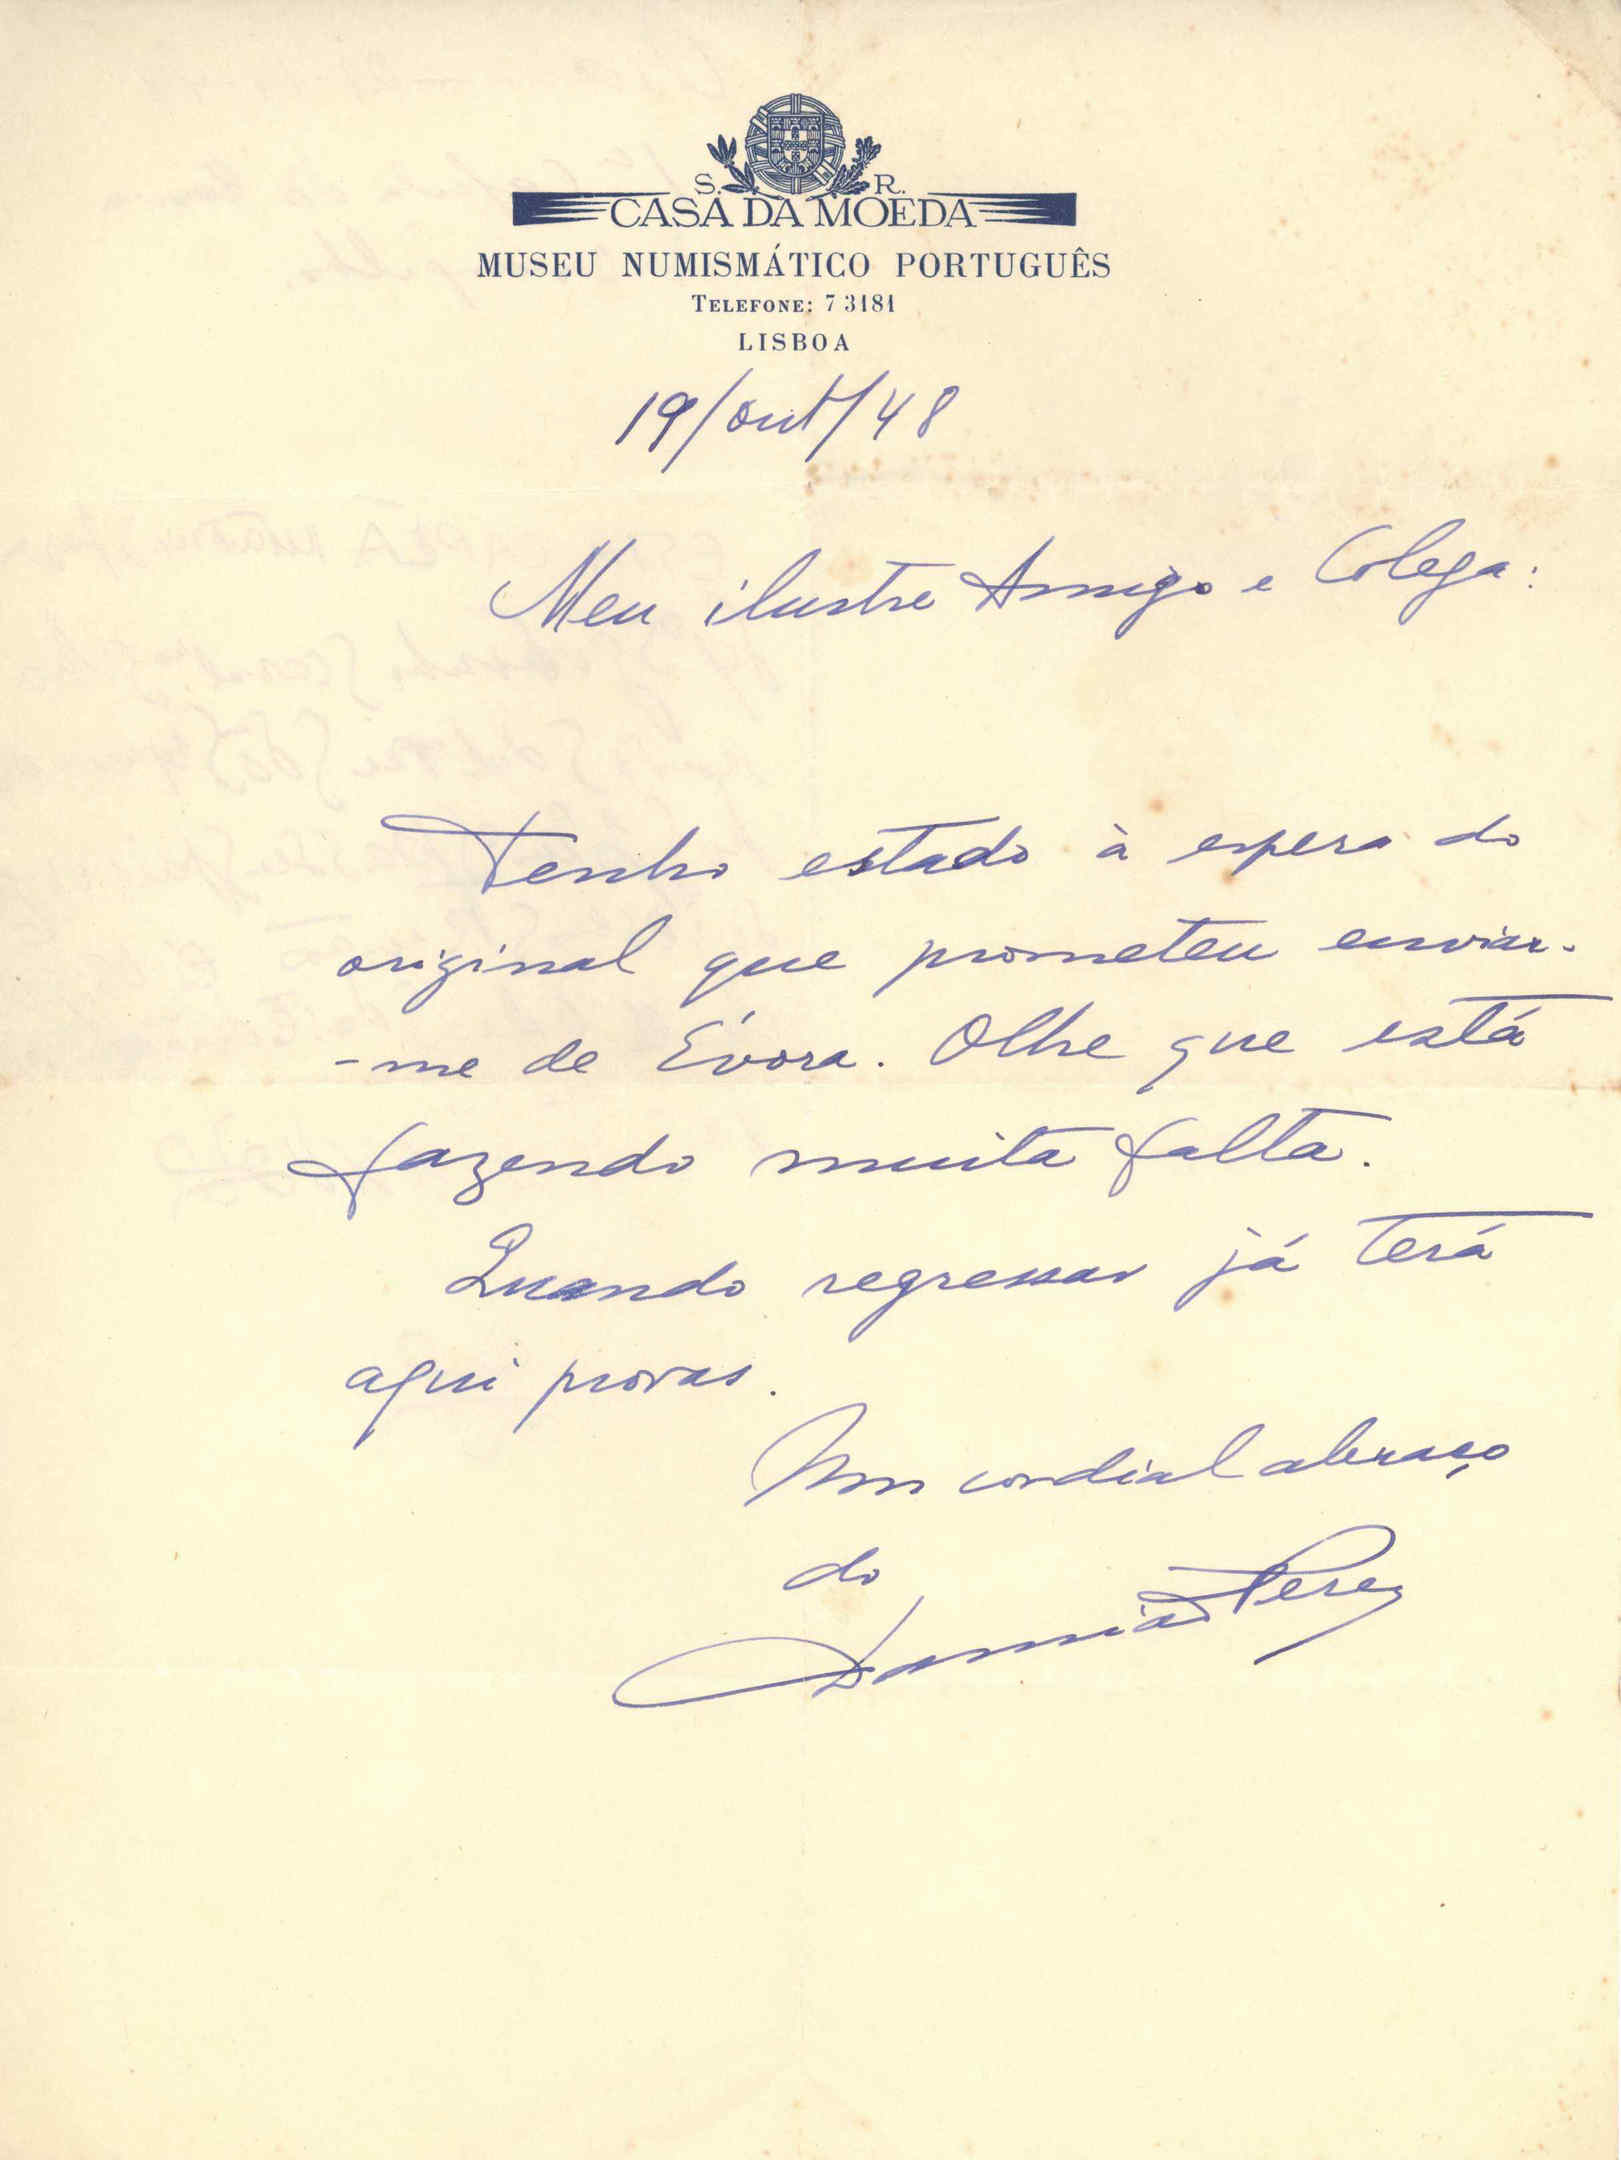 S. R.
CASA DA MOEDA
MUSEU NUMISMÁTICO PORTUGUÊS
TELEFONE: 7 3181
LISBOA
19/out/48
Meu ilustre Amigo e Colega:
Tenho estado à espera do
original que prometeu enviar-
-me de Évora. Olhe que está
fazendo muita falta.
Quando regressar já terá
aqui provas.
Um cordial abraço
do
Damião Peres